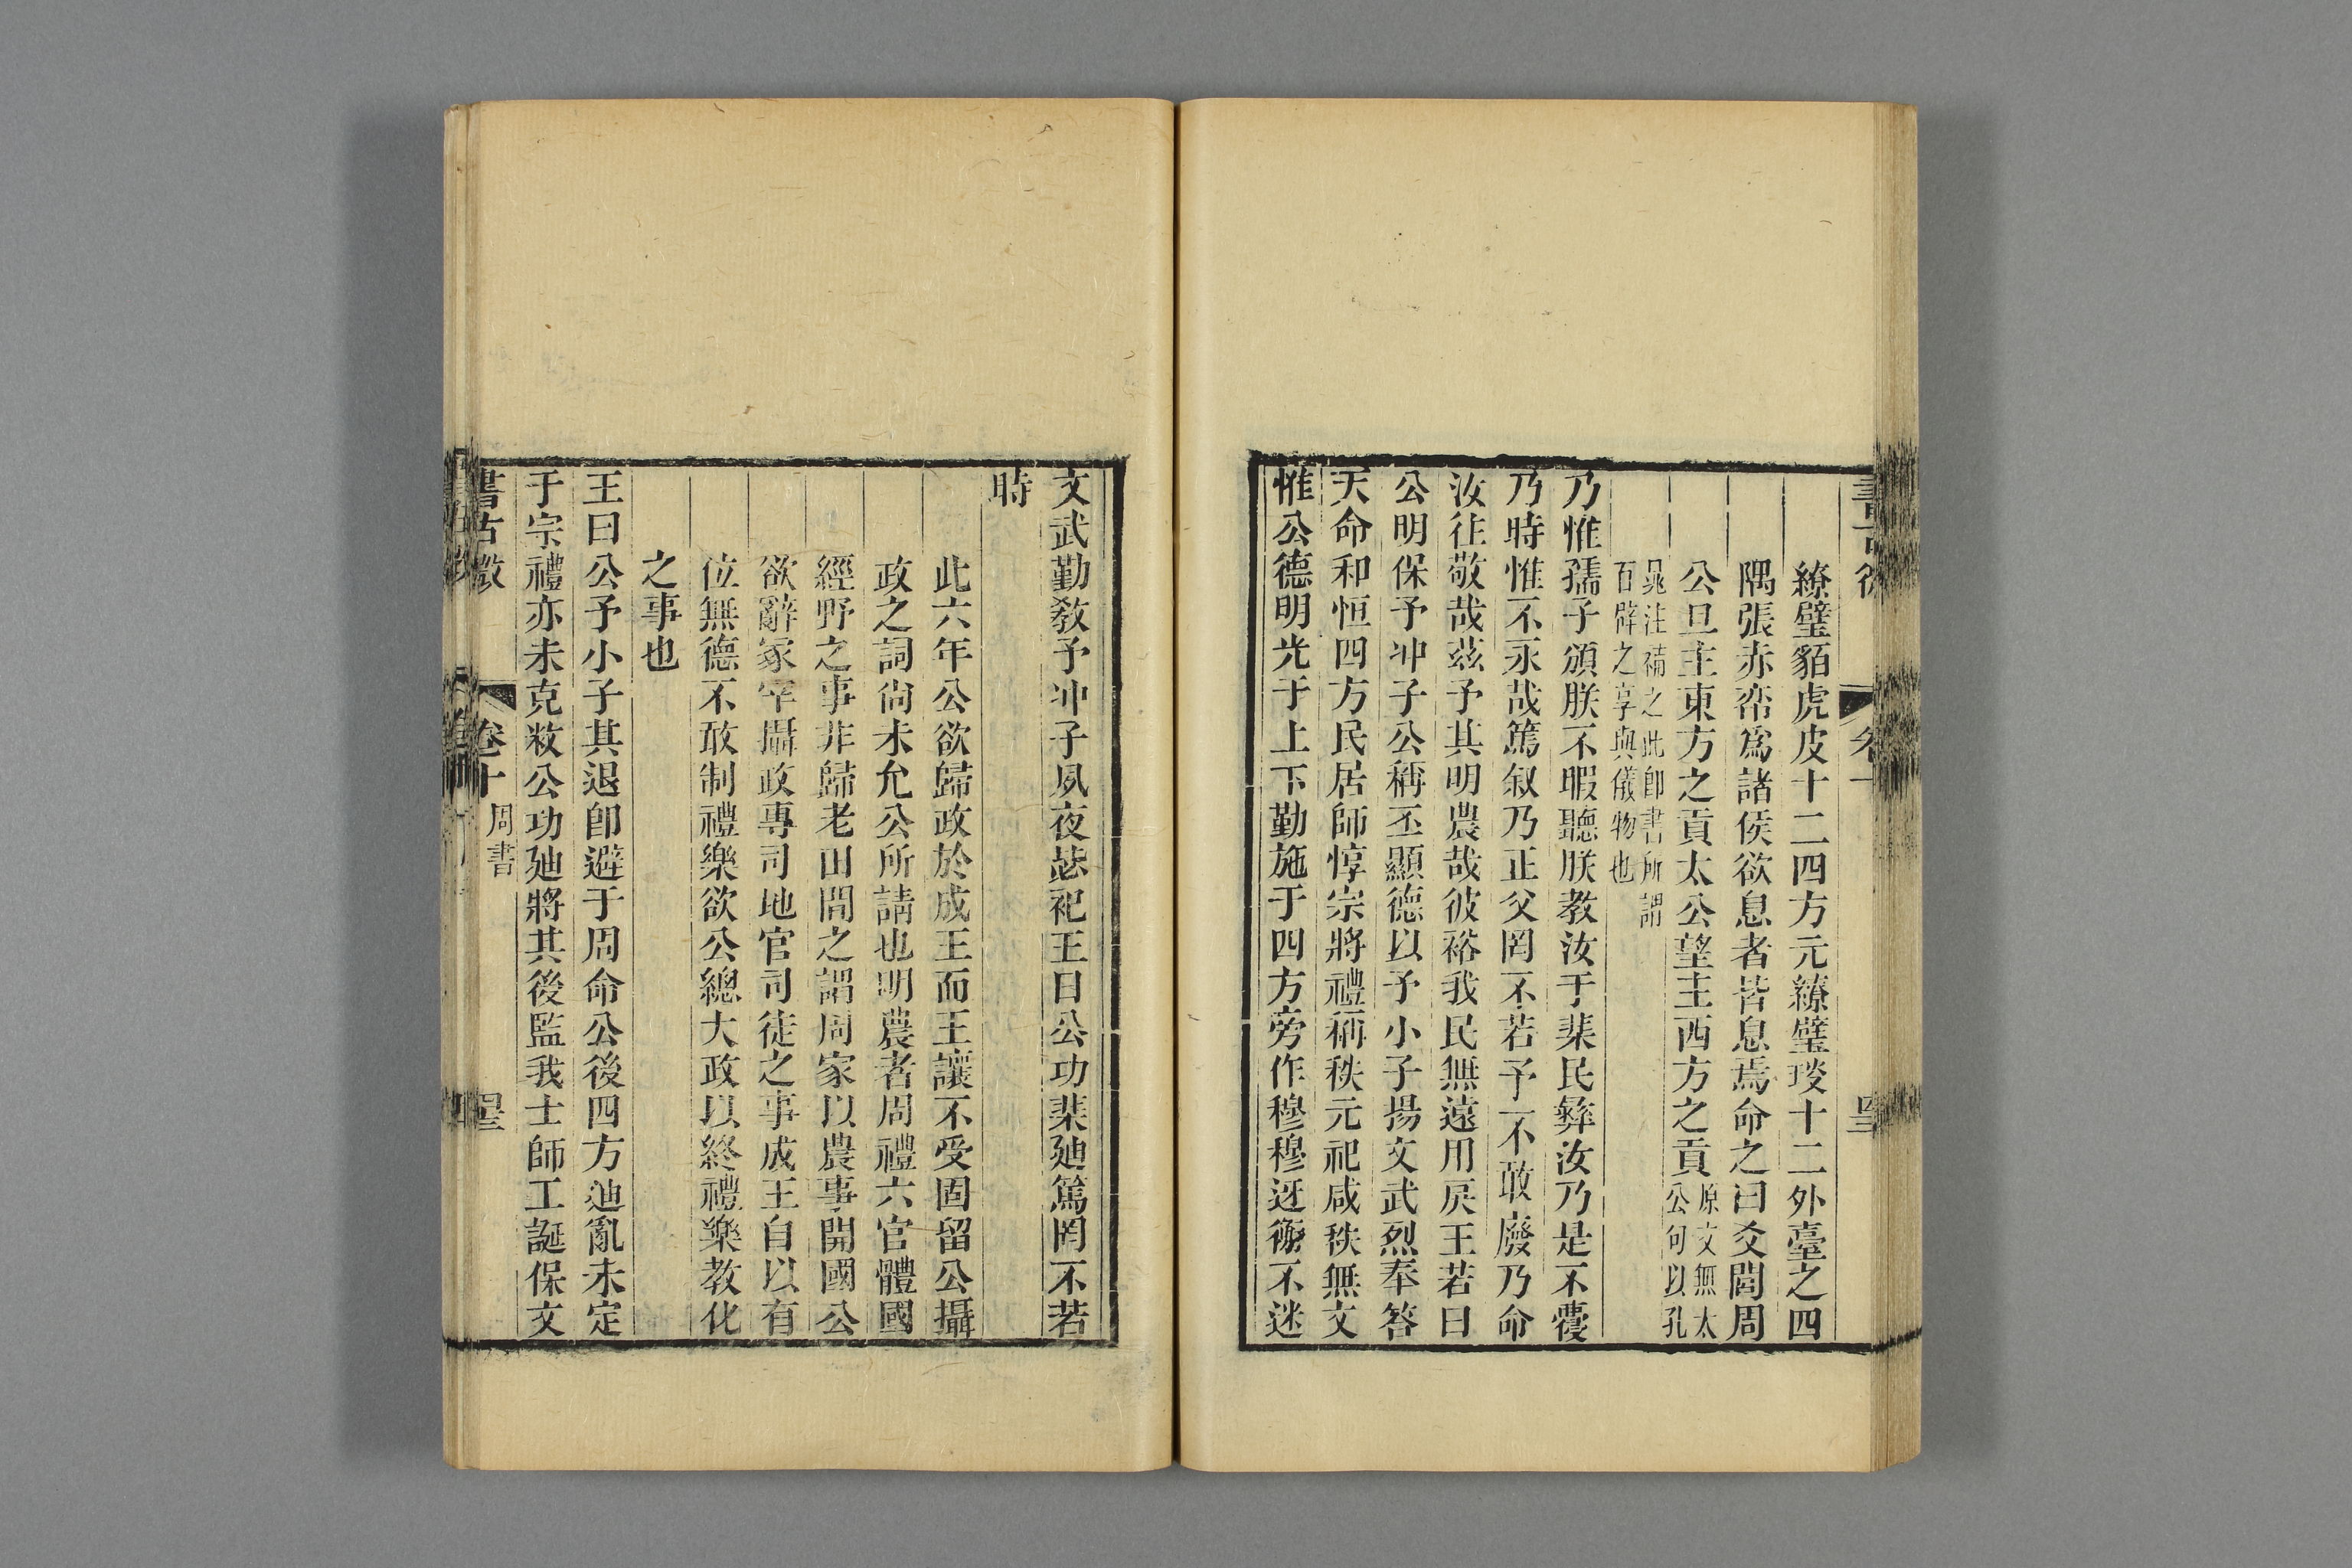 繚璧豾虎皮十二四方元繚璧琰十二外臺之四
隅張赤帟爲諸侯欲息者皆息焉命之曰爻閭周
公旦主東方之貢太公望主西方之貢原文無太公句以孔
晁注補之此卽書所謂百辟之享與儀物也
乃惟孺子頒朕不暇聽朕教汝于棐民彝汝乃是不蘉
乃時惟不永哉篤叙乃正父罔不若予不敢廢乃命
汝往敬哉茲予其明農哉彼裕我民無遠用戾王若曰
公明保予冲子公稱丕顯德以予小子揚文武烈奉答
天命和恒四方民居師惇宗將禮稱秩元祀咸秩無文
惟公德明光于上下勤施于四方旁作穆穆迓衡不迷
文武勤教予冲子夙夜毖祀王曰公功棐迪篤罔不若
時
此六年公欲歸政於成王而王讓不受固留公攝
政之詞尙未允公所請也明農者周禮六官體國
經野之事非歸老田間之謂周家以農事開國公
欲辭冢宰攝政專司地官司徒之事成王自以有
位無德不敢制禮樂欲公總大政以終禮樂教化
之事也
王曰公予小子其退卽避于周命公後四方迪亂未定
于宗禮亦未克敉公功廸將其後監我士師工誕保文
書古微 卷十 周書